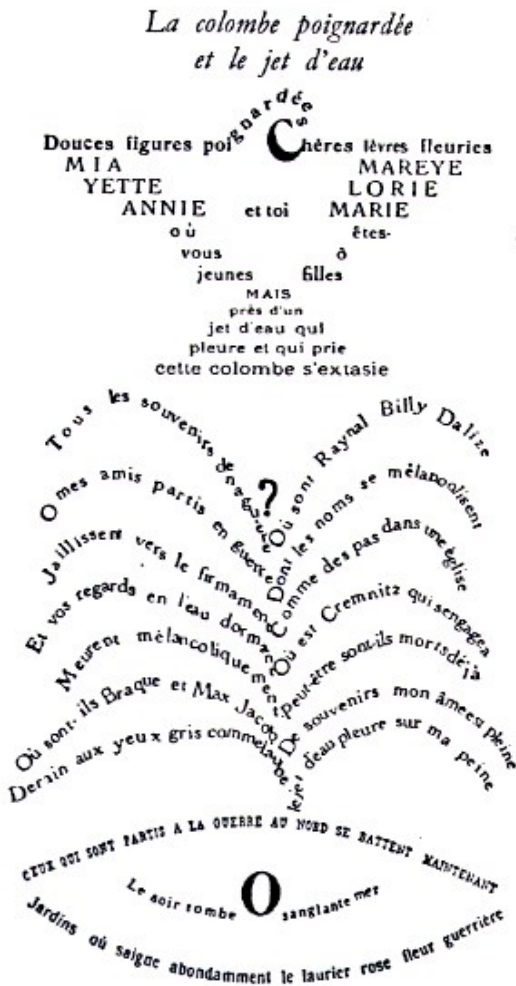 La colombe poignardée
et le jet d'eau
Douces figures poignardées
Chères lèvres fleuries
MIA MAREYE
YETTE LORIE
ANNIE et toi MARIE
où êtes-
vous ô
jeunes filles
MAIS
près d'un
jet d'eau qui
pleure et qui prie
cette colombe s'extasie
Tous les souvenirs de naguère
?
O mes amis partis en guerre
Jaillissent vers le firmament
Et vos regards en l'eau dormant
Meurent mélancoliquement
Où sont-ils Braque et Max Jacob
Derain aux yeux gris comme l'aube
Où sont Raynal Billy Dalize
Dont les noms se mélancolisent
Comme des pas dans une église
Où est Cremnitz qui s'engagea
Peut-être sont-ils morts déjà
De souvenirs mon âme est pleine
Le jet d'eau pleure sur ma peine
CEUX QUI SONT PARTIS A LA GUERRE AU NORD SE BATTENT MAINTENANT
Le soir tombe O sanglante mer
Jardins où saigne abondamment le laurier rose fleur guerrière